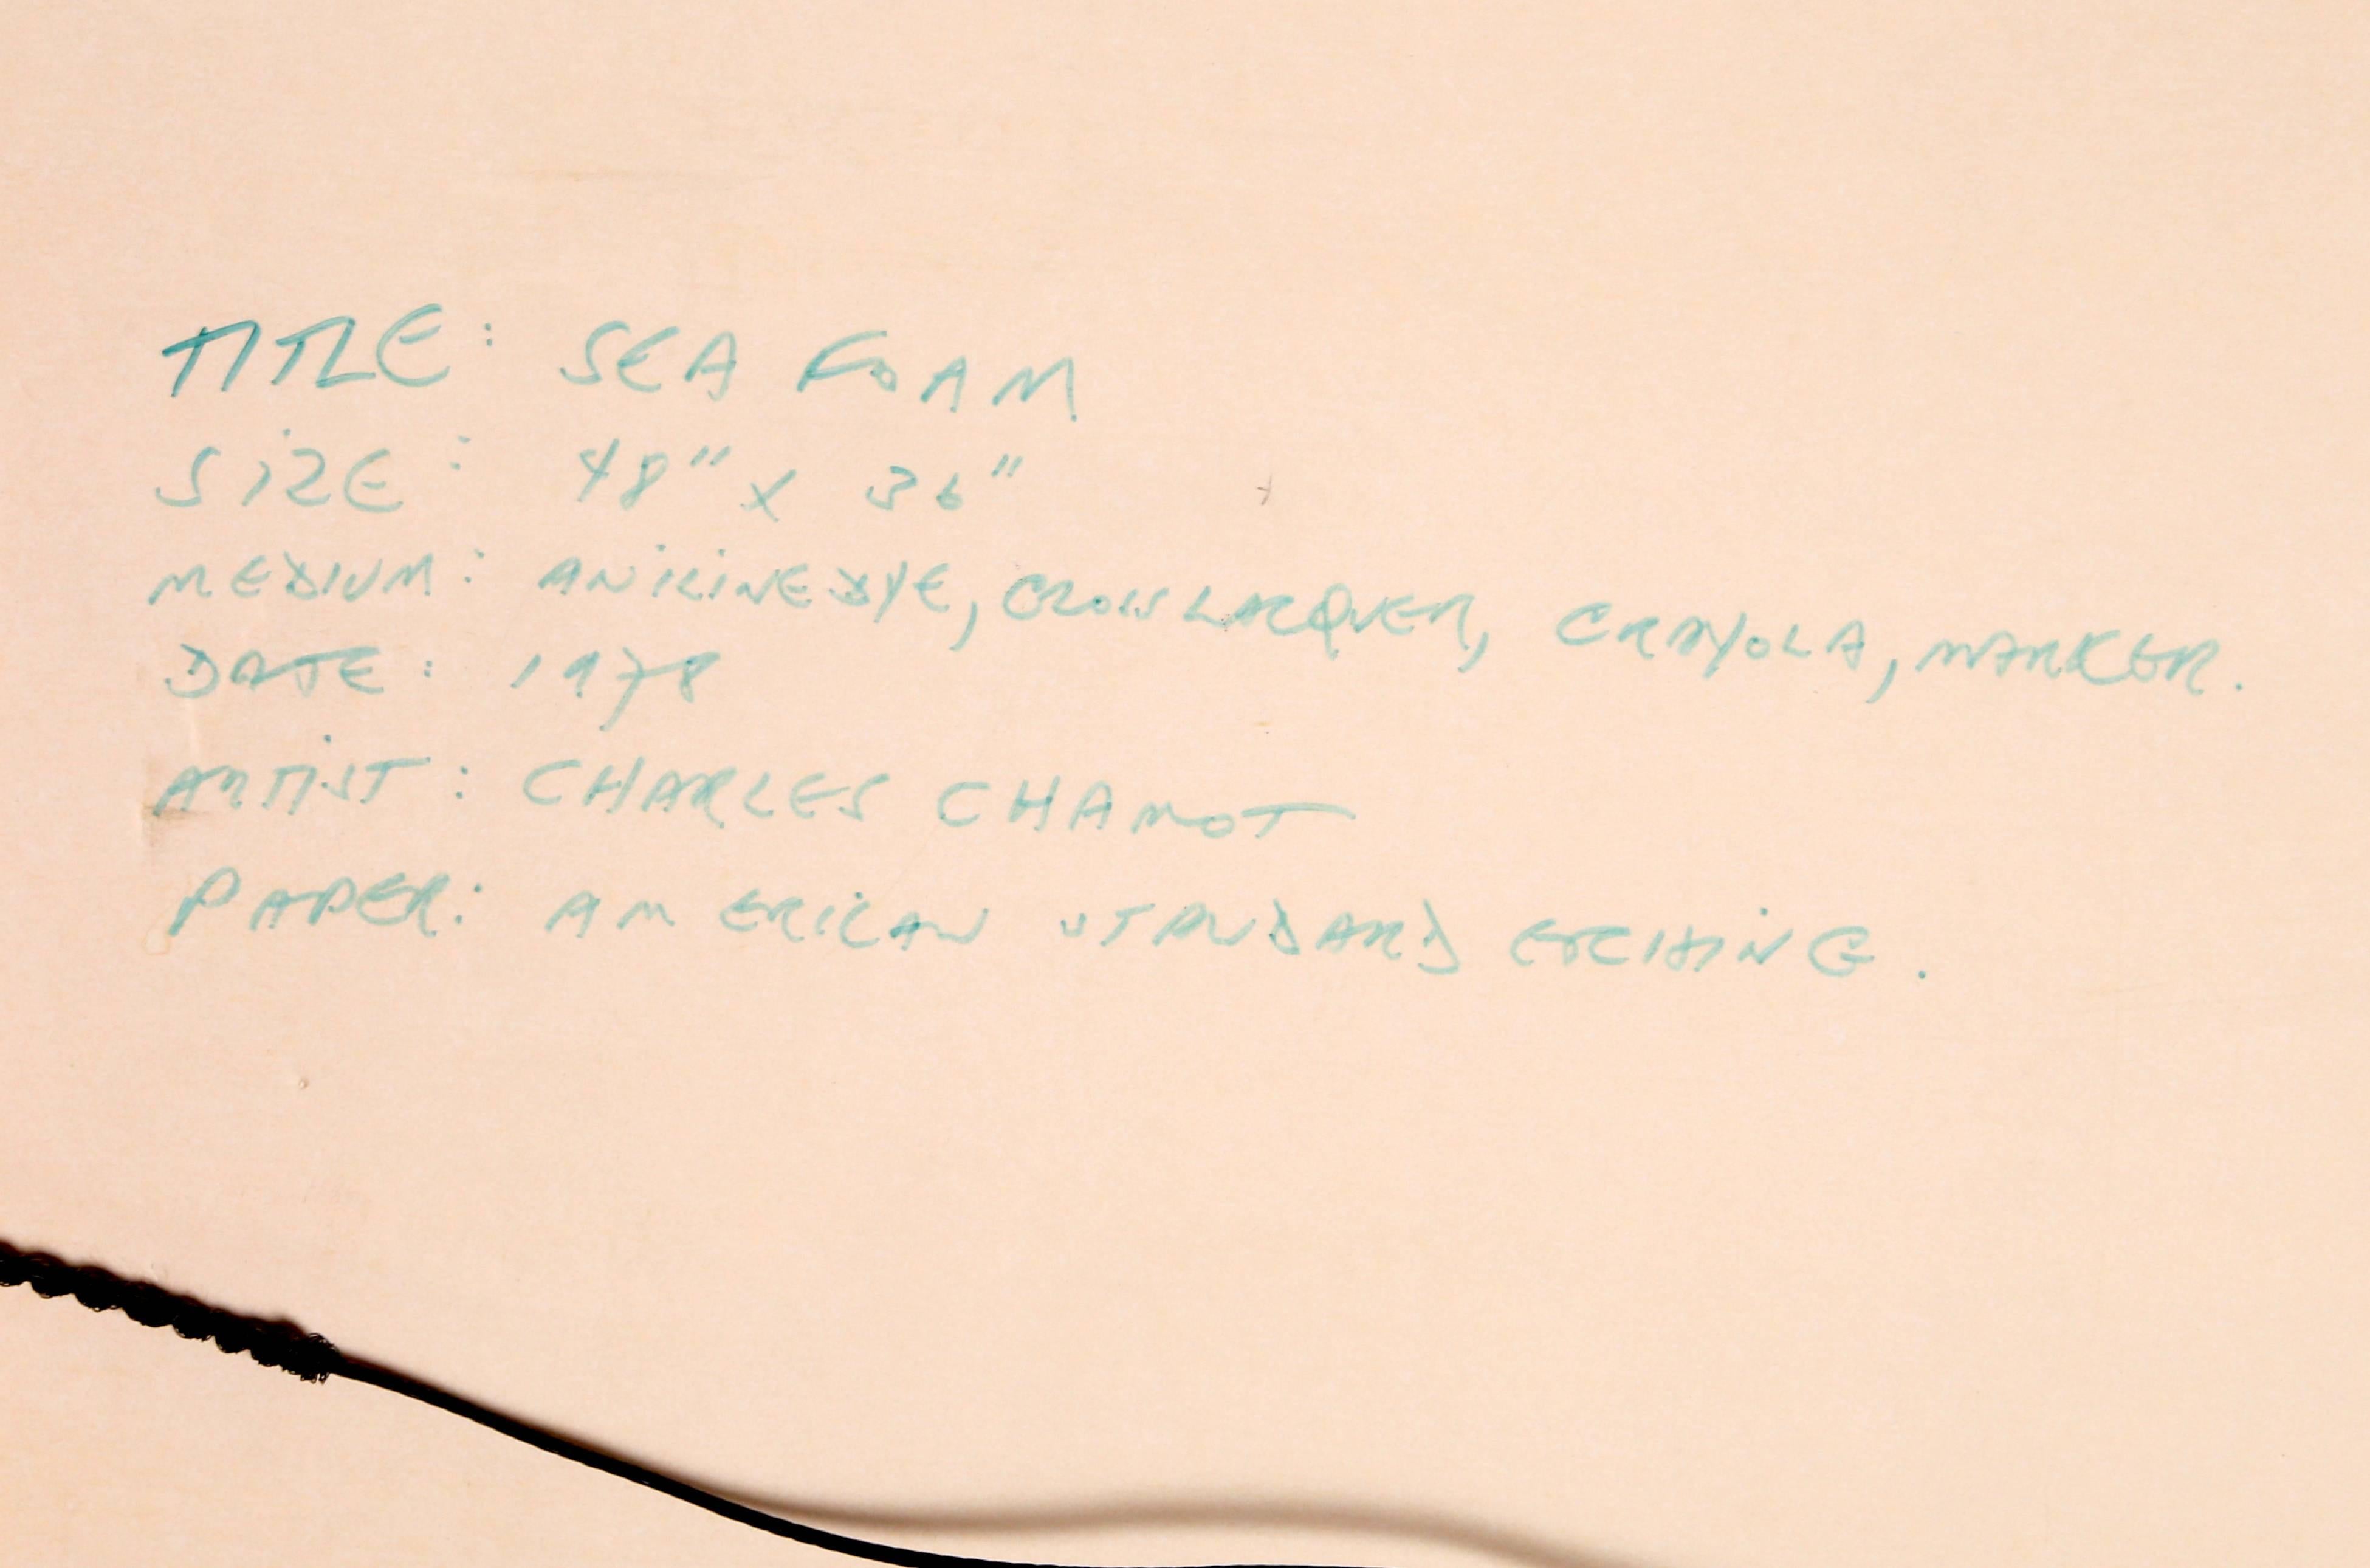 TITLE: SEA FOAM
SIZE: 48" X 36"
MEDIUM: ANILINE DYE, CROW LACQUER, CRAYOLA, MARKER.
DATE: 1978
ARTIST: CHARLES CHAMOT
PAPER: AMERICAN STANDARD ETCHING.